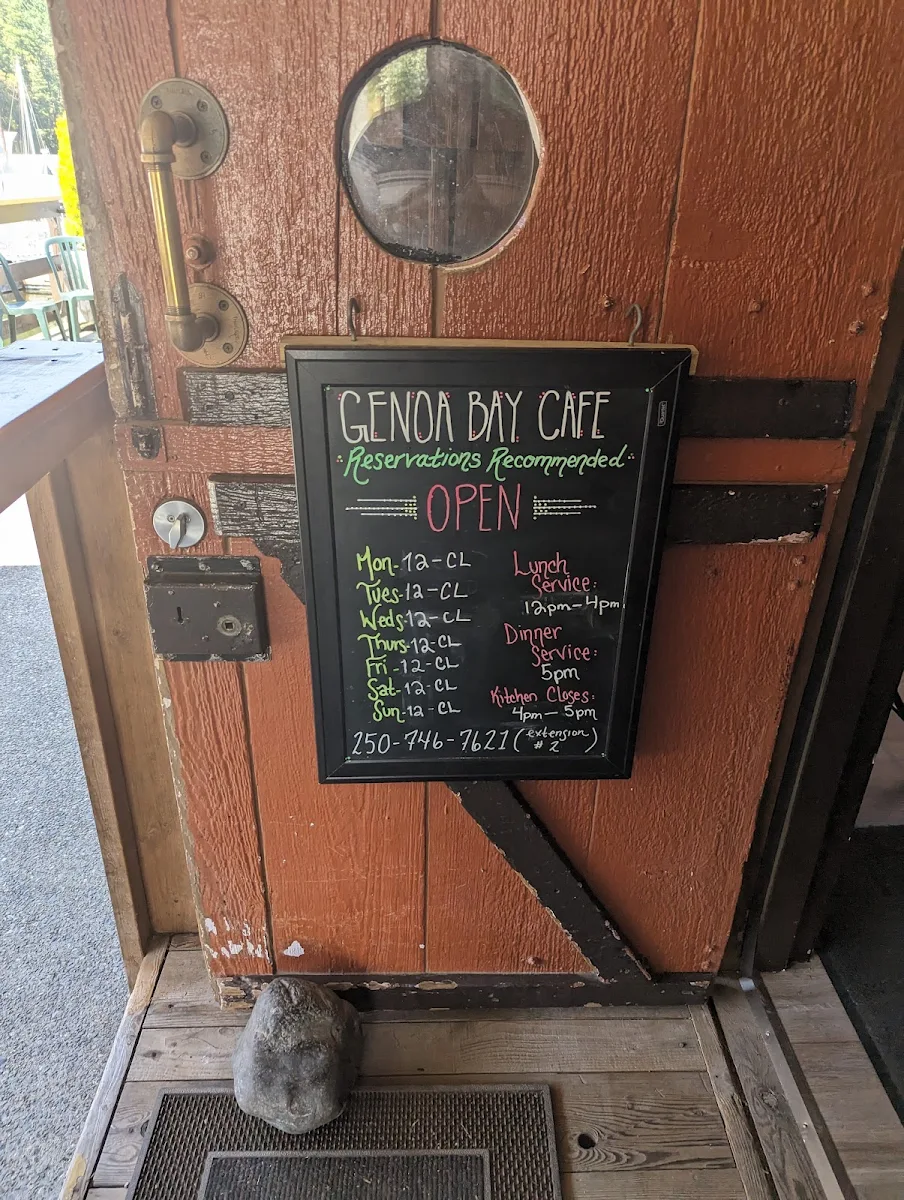 GENOA BAY CAFE
Reservations Recommended
OPEN
Mon-12-CL
Tues-12-CL
Weds-12-CL
Thurs-12-CL
Fri-12-CL
Sat-12-CL
Sun-12-CL
Lunch
Service:
12pm-4pm
Dinner
Service:
5pm
Kitchen Closes:
4pm-5pm
250-746-7621 (extension # 2)